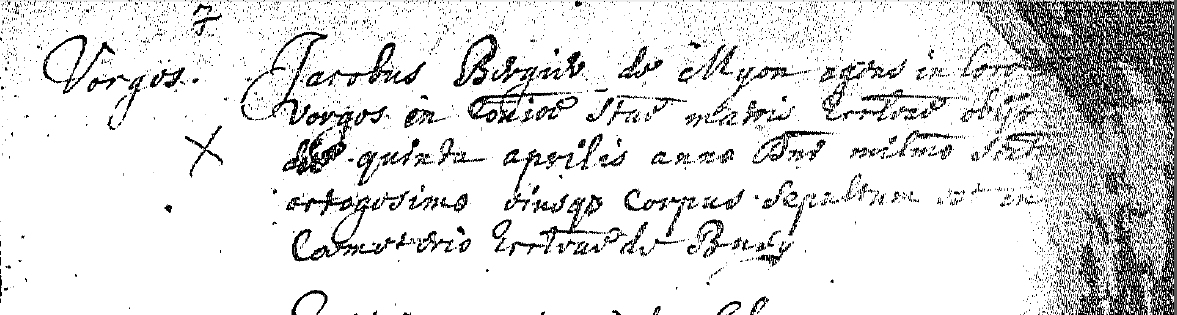 7
Vorges. Jacobus Bergier de Myon agens in loco
Vorges in Com̄ioe Stae matris Eccl̄iae obijt
die quinta aprilis anno Dn̄i mil̄mo
octogesimo eiusqȝ corpus sepultum est in
Cœmeterio Eccl̄iae de Busy